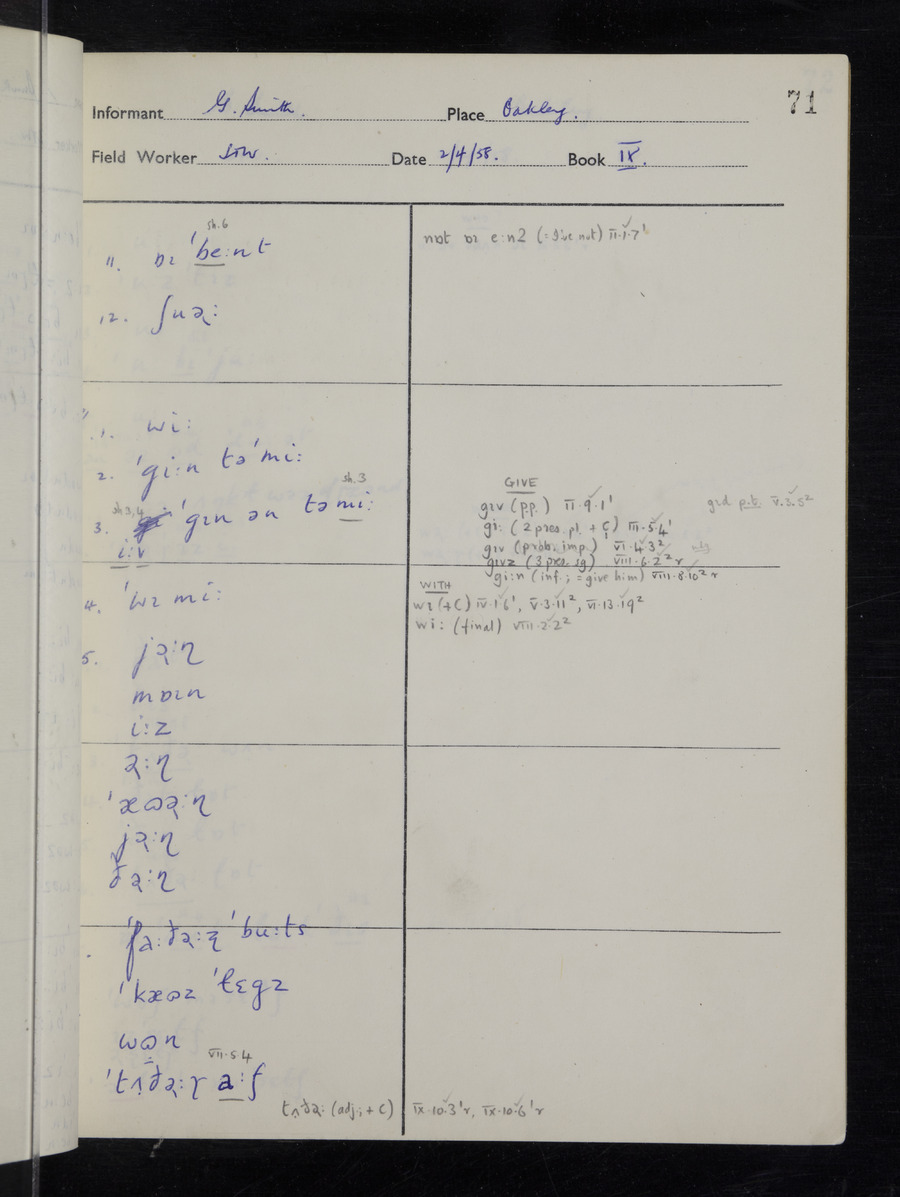 71
Informant G. Smith. Place Oakley.
Field Worker Date 2/4/58. Book IX.
sh.6
11. ɒɪ ˈbe:nt
nɒt ɒɪ e:n2 (=I've not) II·1·7¹
12. ʃuɚ:
1. wi:
2. ˈgi:n təˈmi:
sh.3
sh.3,4
3. ˈgɪn ən təmi:
i:v
GIVE
gɪv (pp.) II·9·1¹
gɪd p.t. V·3·5²
gi: (2 pres. pl. + C) III·5·4¹
gɪv (prob. imp.) VI·4·3²
gɪvz (3 pres. sg) VIII·6·2² r
gi:n (inf.; = give him) VIII·8·10² r
WITH
4. ˈwɪ mi:
wɪ (+C) IV·1·6¹, V·3·11², VI·13·19²
wi: (final) VIII·2·2²
5. jɚ:ɳ
mɒɪn
i:z
ɚ:ɳ
ˈæʊɚ:ɳ
jɚ:ɳ
ðɚ:ɳ
ˈfa:ðɚ:ʐ ˈbu:ts
ˈkæʊz ˈɫɛgz
wʊn
VII·5·4
ˈtʌðɚ:ɽ a:f
tʌðɚ: (adj.; + C) IX·10·3¹r, IX·10·6¹r